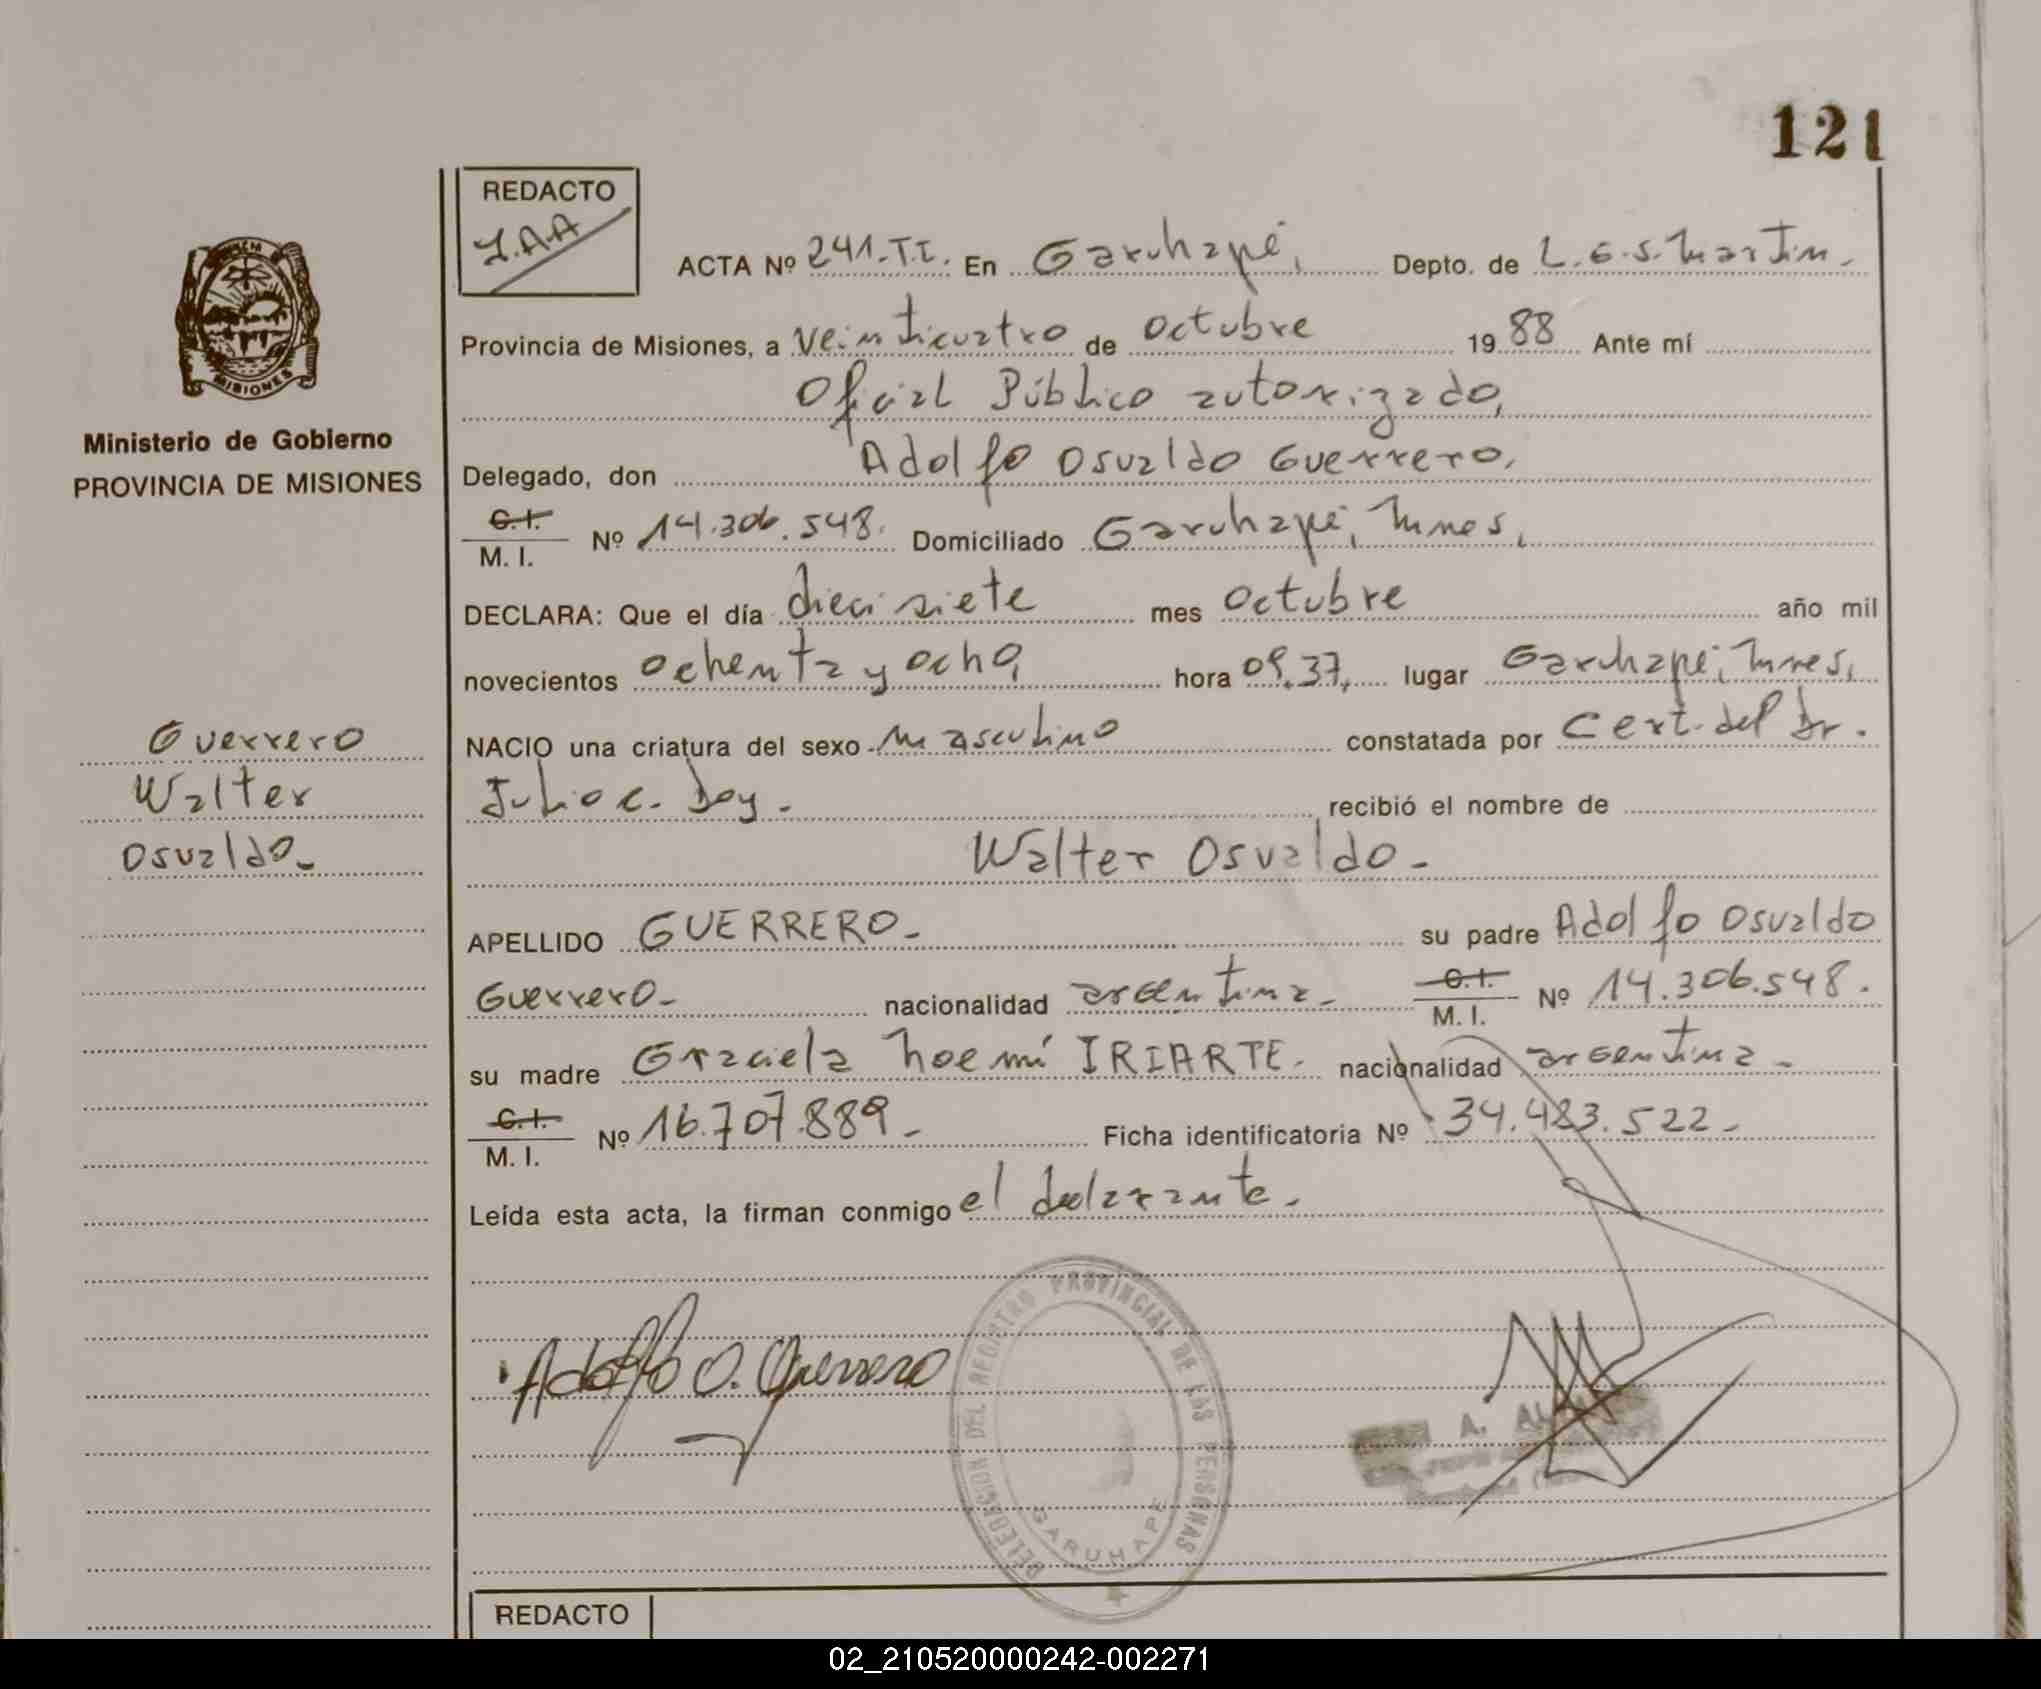 121
REDACTO
J.A.A
ACTA Nº 241.T.I. En Garuhapé, Depto. de L.G.S. Martin.
Provincia de Misiones, a Veinticuatro de Octubre 1988 Ante mí
Oficial Público autorizado,
Delegado, don Adolfo Osvaldo Guerrero,
C.I.
M. I. Nº 14.306.548. Domiciliado Garuhapé, Mnes,
DECLARA: Que el día dieci siete mes Octubre año mil
novecientos ochenta y ocho, hora 09.37, lugar Garuhapé, Mnes,
NACIO una criatura del sexo masculino constatada por Cert. del Dr.
Julio C. Doy. recibió el nombre de
Walter Osvaldo.
APELLIDO GUERRERO. su padre Adolfo Osvaldo
Guerrero. nacionalidad argentina. C.I.
M. I. Nº 14.306.548.
su madre Graciela Noemí IRIARTE. nacionalidad argentina.
C.I.
M. I. Nº 16.707.889. Ficha identificatoria Nº 34.483.522.
Leída esta acta, la firman conmigo el declarante.
Adolfo O. Guerrero
DELEGACION DEL REGISTRO PROVINCIAL DE LAS PERSONAS
GARUHAPE
A.
REDACTO
MISIONES
Ministerio de Gobierno
PROVINCIA DE MISIONES
Guerrero
Walter
Osvaldo.
02_210520000242-002271